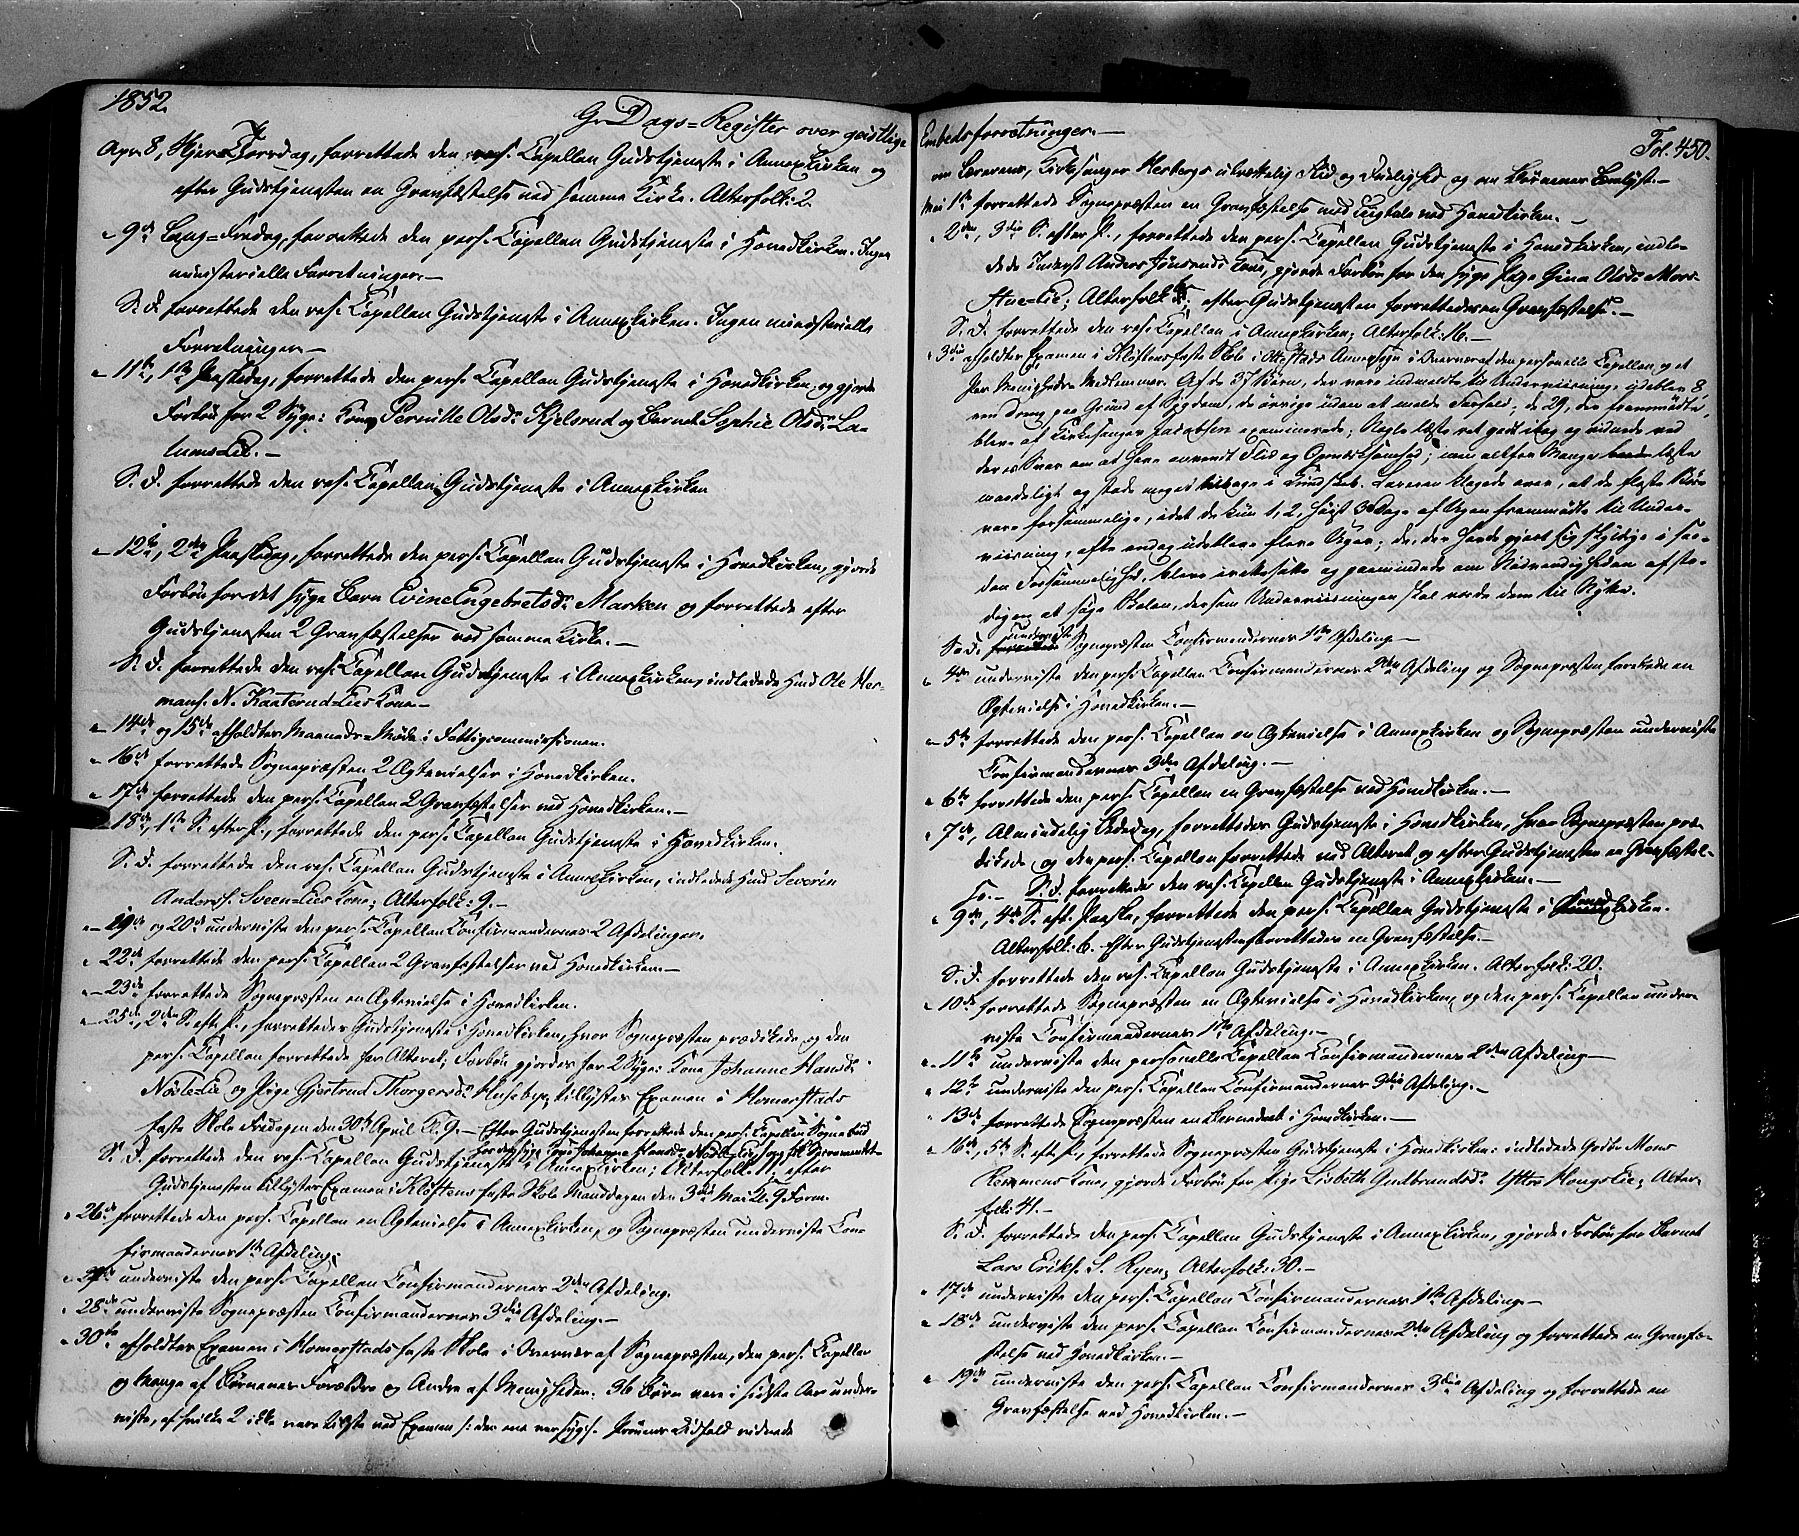 1852.
G. Dags-Register over geistlige
Apr. 8, Skjer-Torsdag, forrettede den res. Capellan Gudstjeneste i Annexkirken og
efter Gudstjenesten en Gravfæstelse ved samme Kirke. Alterfolk: 2.
" 9de Lang-Fredag, forrettede den pers. Capellan Gudstjeneste i Hovedkirken. Ingen
ministerielle Forretninger.—
S. D. forrettede den res. Capellan Gudstjeneste i Annexkirken. Ingen ministerielle
Forretninger.—
" 11te, 1ste Paaskedag, forrettede den pers. Capellan Gudstjeneste i Hovedkirken, og gjorde
Forbøn for 2 Syge: Kone Pernille Olsd. Kjelsrud og Barnet Sophie Olsd. La-
lums-Eie.—
S. D. forrettede den res. Capellan Gudstjeneste i Annexkirken
" 12te, 2den Paaskedag, forrettede den pers. Capellan Gudstjeneste i Hovedkirken, gjorde
Forbøn for det syge Barn Evine Engebretsd. Marken og forrettede efter
Gudstjenesten 2 Gravfæstelser ved samme Kirke.—
S. D. forrettede den res. Capellan Gudstjeneste i Annexkirken, indledede Hmd Ole Her-
mans. N. Kanterud-Eies Kone.—
" 14de og 15de afholdtes Maaneds-Møde i Fattigcommissionen.
" 16de forrettede Sognepræsten 2 Ægtevielser i Hovedkirken.
" 17de forrettede den pers. Capellan 2 Gravfæstelser ved Hovedkirken.—
" 18de, 1ste S. efter P., forrettede den pers. Capellan Gudstjeneste i Hovedkirken.
S. D. forrettede den res. Capellan Gudstjeneste i Annexkirken, indledede Hmd Severin
Anders. Sveen-Eies Kone; Alterfolk: 9.—
" 19de og 20de underviste den pers. Capellan Confirmandernes 2 Afdelinger.
" 22de forrettede den pers. Capellan 2 Gravfæstelser ved Hovedkirken.—
" 23de forrettede Sognepræsten en Ægtevielse i Hovedkirken.
" 25de, 2den S. eft. P., forrettedes Gudstjeneste i Hovedkirken, hvor Sognepræsten prædikede og den
pers. Capellan forrettede for Alteret; Forbøn gjordes for 2 Syge: Kone Johanne Hansd.
Nøsle-Eie og Pige Gjertrud Thorgersd. Huseby; tillystes Examen i Homerstads
faste Skole Fredagen den 30te April Kl. 9.— Efter Gudstjenesten forrettede den pers. Capellan i Sognebud
for den syge Kone Johanne Hansd. Nøsle-Eie
S. D. forrettede den res. Capellan Gudstjeneste i Annexkirken; Alterfolk: 11. efter
Gudstjenesten tillystes Examen i Kløftens faste Skole Manddagen den 3die Mai Kl. 9 Form.
" 26de forrettede den pers. Capellan en Ægtevielse i Annexkirken, og Sognepræsten underviste Con-
firmandernes 1ste Afdeling.
" 27de underviste den pers. Capellan Confirmandernes 2den Afdeling.
" 28de underviste Sognepræsten Confirmandernes 3die Afdeling.—
" 30te afholdtes Examen i Homerstads faste Skole i Overvær af Sognepræsten, den pers. Capellan
og Mange af Børnenes Forældre og Andre af Menigheden. 36 Børn vare i sidste Aar under-
viste, af hvilke 2 ikke vare tilstede ved Examen, den ene var syg. Prøvens Udfald vidnede
Embedsforretninger.—
Fol. 450.
om Lærerens, Kirkesanger Herbergs utrættelig Flid og Duelighed og om Børnenes Lærelyst.—
Mai 1ste forrettede Sognepræsten en Gravfæstelse med Liigtale ved Hovedkirken.—
" 2den, 3die S. efter P., forrettede den pers. Capellan Gudstjeneste i Hovedkirken, indle-
dede Inderst Anders Jonsruds Kone, gjorde Forbøn for den syge Pige Gina Olsd. Mors-
Hue-Eie; Alterfolk: efter Gudstjenesten forrettedes en Gravfæstelse.—
S. D. forrettede den res. Capellan i Annexkirken; Alterfolk: 16.—
" 3die afholdtes Examen i Kløftens faste Skole i Annexsogn i Overværet den personelle Capellan og et
Par Menigheds-Medlemmer. Af de 37 Børn, der vare indmeldte til Underviisning, udebleve 8,
een Dreng paa Grund af Sygdom, de øvrige uden at melde Forfald; de 29, der fremmødte,
bleve af Kirkesanger Jacobsen examinerede; Nogle læste ret godt i Bog og vidnede ved
deres Svar om at have anvendt Flid og Opmærksomhed; men altfor Mange læste
maadeligt og stode meget tilbage i Kundskab. Læreren klagede over, at de fleste Børn
vare forsømmelige, idet de kun 1, 2, høist 3 Dage af Ugen fremmødte til Under-
viisning, ofte endog udebleve flere Uger; de, der havde gjort sig skyldige i saa-
dan Forsømmelighed, bleve irettesatte og paamindede om Nødvendigheden af sta-
digen at søge Skolen, dersom Underviisningen skal vorde dem til Nytte.
S. D. underviste Sognepræsten Confirmandernes 1ste Afdeling.—
" 4de underviste den pers. Capellan Confirmandernes 2den Afdeling og Sognepræsten forrettede en
Ægtevielse i Hovedkirken.—
" 5te forrettede den pers. Capellan en Ægtevielse i Annexkirken og Sognepræsten underviste
Confirmandernes 3die Afdeling.—
" 6te forrettede den pers. Capellan en Gravfæstelse ved Hovedkirken.—
" 7de, Almindelig Bededag, forrettedes Gudstjeneste i Hovedkirken, hvor Sognepræsten præ-
dikede og den pers. Capellan forrettede ved Alteret og efter Gudstjenesten en Gravfæstel-
se.— S. D. forrettede den res. Capellan Gudstjeneste i Annexkirken.—
" 9de, 4de S. eft. Paaske, forrettede den pers. Capellan Gudstjeneste i Hovedkirken.
Alterfolk: 6. Efter Gudstjenesten forrettedes en Gravfæstelse.—
S. D. forrettede den res. Capellan Gudstjeneste i Annexkirken. Alterfolk: 20.
" 10de forrettede Sognepræsten en Ægtevielse i Hovedkirken, og den pers. Capellan under-
viste Confirmandernes 1ste Afdeling.—
" 11te underviste den personelle Capellan Confirmandernes 2den Afdeling.—
" 12te underviste den pers. Capellan Confirmandernes 3die Afdeling.—
" 13de forrettede Sognepræsten en Barnedaab i Hovedkirken.—
" 16de, 5te S. eft. P., forrettede Sognepræsten Gudstjeneste i Hovedkirken: indledede Gdbr. Mons
Rommens Kone, gjorde Forbøn for Pige Lisbeth Gudbrandsd. Yttre Kongs-Eie; Alter-
folk: 41.—
S. D. forrettede den pers. Capellan Gudstjeneste i Annexkirken, gjorde Forbøn for Barnet
Lars Eriks. S. Ryen; Alterfolk: 30.—
" 17de underviste den pers. Capellan Confirmandernes 1ste Afdeling.—
" 18de underviste den pers. Capellan Confirmandernes 2den Afdeling og forrettede en Gravfæ-
stelse ved Hovedkirken.—
" 19de underviste den pers. Capellan Confirmandernes 3die Afdeling og forrettede en
Gravfæstelse ved Hovedkirken.—